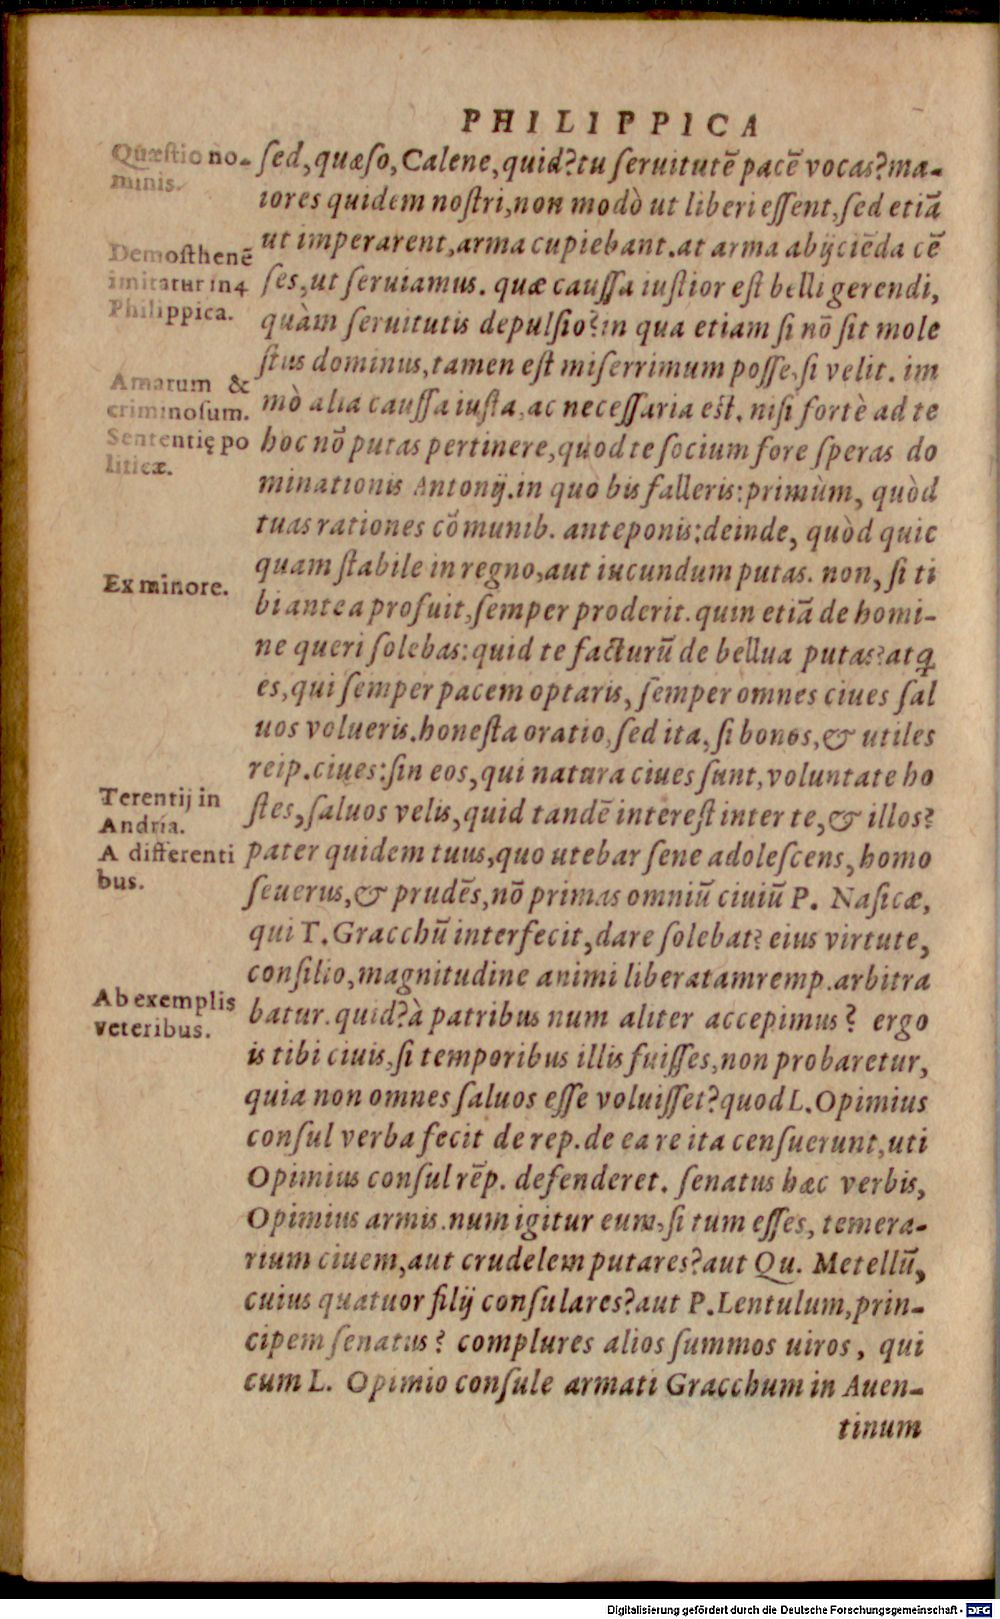 PHILIPPICA
Quæstio no-
minis.
Demosthenē
imitatur in 4
Philippica.
Amarum &
criminosum.
Sententię po
liticæ.
Ex minore.
Terentij in
Andria.
A differenti
bus.
Ab exemplis
veteribus.
ſed, quæſo, Calene, quid? tu ſeruitutē pacē vocas? ma-
iores quidem noſtri, non modò ut liberi eſſent, ſed etiā
ut imperarent, arma cupiebant. at arma abijciēda cē
ſes, ut ſeruiamus. quæ cauſſa iuſtior eſt belli gerendi,
quàm ſeruitutis depulſio? in qua etiam ſi nō ſit mole
ſtus dominus, tamen eſt miſerrimum poſſe, ſi velit. im
mò alia cauſſa iuſta, ac neceſſaria eſt. niſi fortè ad te
hoc nō putas pertinere, quod te ſocium fore ſperas do
minationis Antonij. in quo bis falleris: primùm, quòd
tuas rationes cōmunib. anteponis: deinde, quòd quic
quam ſtabile in regno, aut iucundum putas. non, ſi ti
bi antea profuit, ſemper proderit. quin etiā de homi-
ne queri ſolebas: quid te facturū de bellua putas? atq́
es, qui ſemper pacem optaris, ſemper omnes ciues ſal
uos volueris. honeſta oratio, ſed ita, ſi bonos, & utiles
reip. ciues: ſin eos, qui natura ciues ſunt, voluntate ho
ſtes, ſaluos velis, quid tandē intereſt inter te, & illos?
pater quidem tuus, quo utebar ſene adoleſcens, homo
ſeuerus, & prudēs, nō primas omniū ciuiū P. Naſicæ,
qui T. Gracchū interfecit, dare ſolebat? eius virtute,
conſilio, magnitudine animi liberatam remp. arbitra
batur. quid? à patribus num aliter accepimus? ergo
is tibi ciuis, ſi temporibus illis fuiſſes, non probaretur,
quia non omnes ſaluos eſſe voluiſſet? quod L. Opimius
conſul verba fecit de rep. de ea re ita cenſuerunt, uti
Opimius conſul rēp. defenderet. ſenatus hæc verbis,
Opimius armis. num igitur eum, ſi tum eſſes, temera-
rium ciuem, aut crudelem putares? aut Qu. Metellū,
cuius quatuor filij conſulares? aut P. Lentulum, prin-
cipem ſenatus? complures alios ſummos uiros, qui
cum L. Opimio conſule armati Gracchum in Auen-
tinum
Digitalisierung gefördert durch die Deutsche Forschungsgemeinschaft - DFG